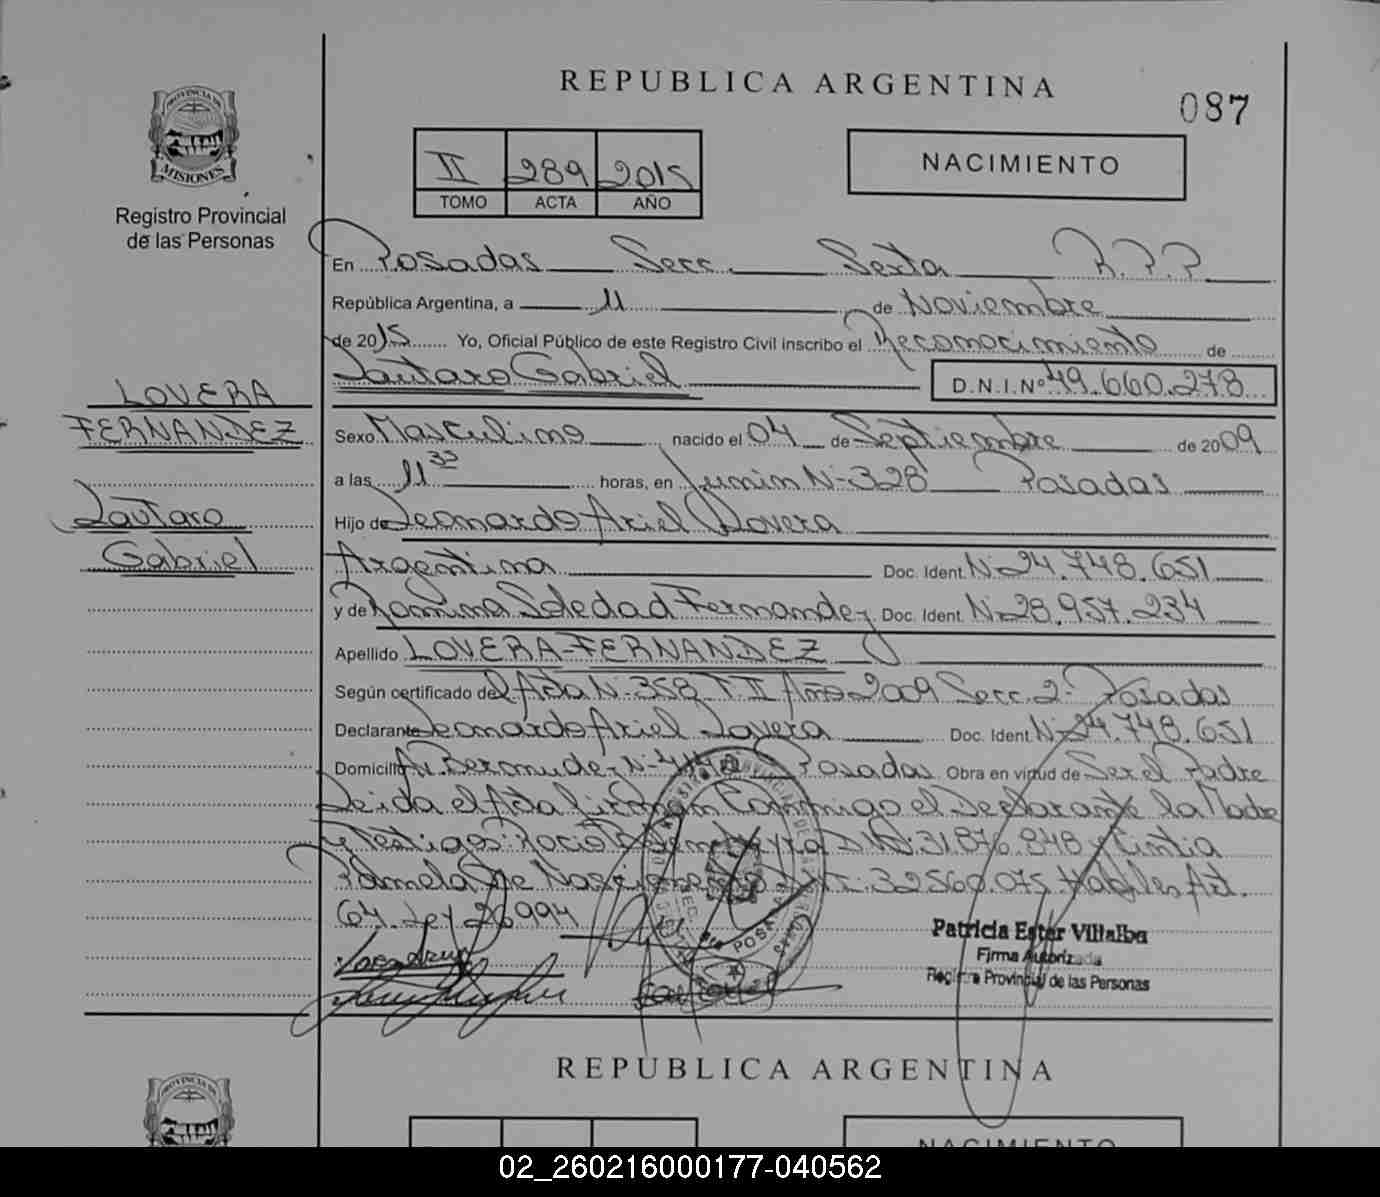 REPUBLICA ARGENTINA
087
PROVINCIA DE
MISIONES
Registro Provincial
de las Personas
II 289 2015
TOMO ACTA AÑO
NACIMIENTO
En Posadas Secc. Sexta R.P.P
República Argentina, a 11 de Noviembre
de 2015 Yo, Oficial Público de este Registro Civil inscribo el Reconocimiento de
Lautaro Gabriel D.N.I.Nº 49.660.278
LOVERA
FERNANDEZ
Lautaro
Gabriel
Sexo Masculino nacido el 04 de Septiembre de 2009
a las 11 30 horas, en Junin Nº 328 Posadas
Hijo de Leonardo Ariel Lovera
Argentina Doc. Ident. Nº 24.748.651
y de Romina Soledad Fernandez Doc. Ident. Nº 28.957.234
Apellido LOVERA-FERNANDEZ
Según certificado del Acta Nº 358 T II Año 2009 Secc. 2º Posadas
Declarante Leonardo Ariel Lovera Doc. Ident. Nº 24.748.651
Domicilio Av. Bermudez Nº Posadas Obra en virtud de Ser el Padre
Leida el Acta firman conmigo el Declarante la Madre
y Testigos: Rocio DNI: 31.876.848 y Cintia
Pamela 32560.075 Habiles Art.
64. Ley 26994
POSADAS
Patricia Ester Villalba
Firma Autorizada
Registro Provincial de las Personas
REPUBLICA ARGENTINA
PROVINCIA DE
NACIMIENTO
02_260216000177-040562